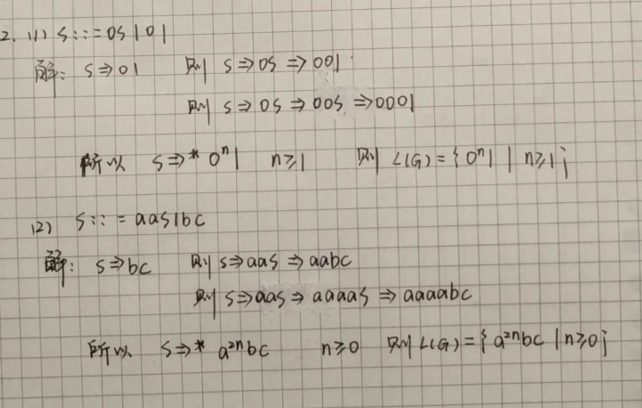 2. (1) S::=0S|01
解: S⇒01 则 S⇒0S⇒001
则 S⇒0S⇒00S⇒0001
所以 S⇒* 0ⁿ1 n≥1 则 L(G)={0ⁿ1 | n≥1}
(2) S::=aaS|bc
解: S⇒bc 则 S⇒aaS⇒aabc
则 S⇒aaS⇒aaaaS⇒aaaabc
所以 S⇒* a²ⁿbc n≥0 则 L(G)={a²ⁿbc | n≥0}